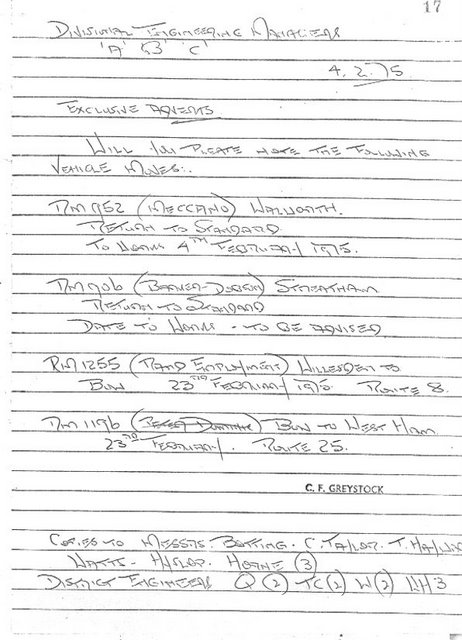 17
DIVISIONAL ENGINEERING MANAGERS
'A' 'B' 'C'
4.2.75
EXCLUSIVE ADVERTS
WILL YOU PLEASE NOTE THE FOLLOWING
VEHICLE MOVES:.
RM 952 (MECCANO) WALWORTH.
RETURN TO STANDARD
TO WORKS 4TH FEBRUARY 1975.
RM 906 (BARKER-DOBSON) STREATHAM
RETURN TO STANDARD
DATE TO WORKS - TO BE ADVISED
RM 1255 (RAND EMPLOYMENT) WILLESDEN TO
BOW 23RD FEBRUARY 1975. ROUTE 8.
RM 1196 BOW TO WEST HAM
23RD FEBRUARY. ROUTE 25.
C. F. GREYSTOCK
COPIES TO MESSRS. BOTTING. C. TAYLOR. T.
WATTS - HYSLOP. HORNE (3)
DISTRICT ENGINEERS Q (2) TC (2) W (2) NH 3